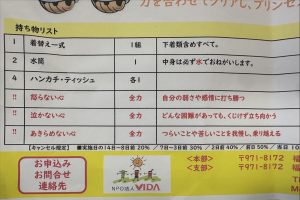 力を合わせてクリアし、プリンセ
持ち物リスト
1 着替え一式 1組 下着類含めすべて。
2 水筒 1 中身は必ず水でおねがいします。
4 ハンカチ・ティッシュ 各1
!! 怒らない心 全力 自分の弱さや感情に打ち勝つ
!! 泣かない心 全力 どんな困難があっても、くじけず立ち向かう
!! あきらめない心 全力 つらいことや苦しいことを我慢し、乗り越える
【キャンセル規定】 ■実施日の14日~8日前 20% /7日~3日前 30% / 2日前 40% / 前日 50% / 当日
お申込み
お問合せ
連絡先
NPO法人 VIDA
<本部> 〒971-8172 福
<支部> 〒971-8172 福